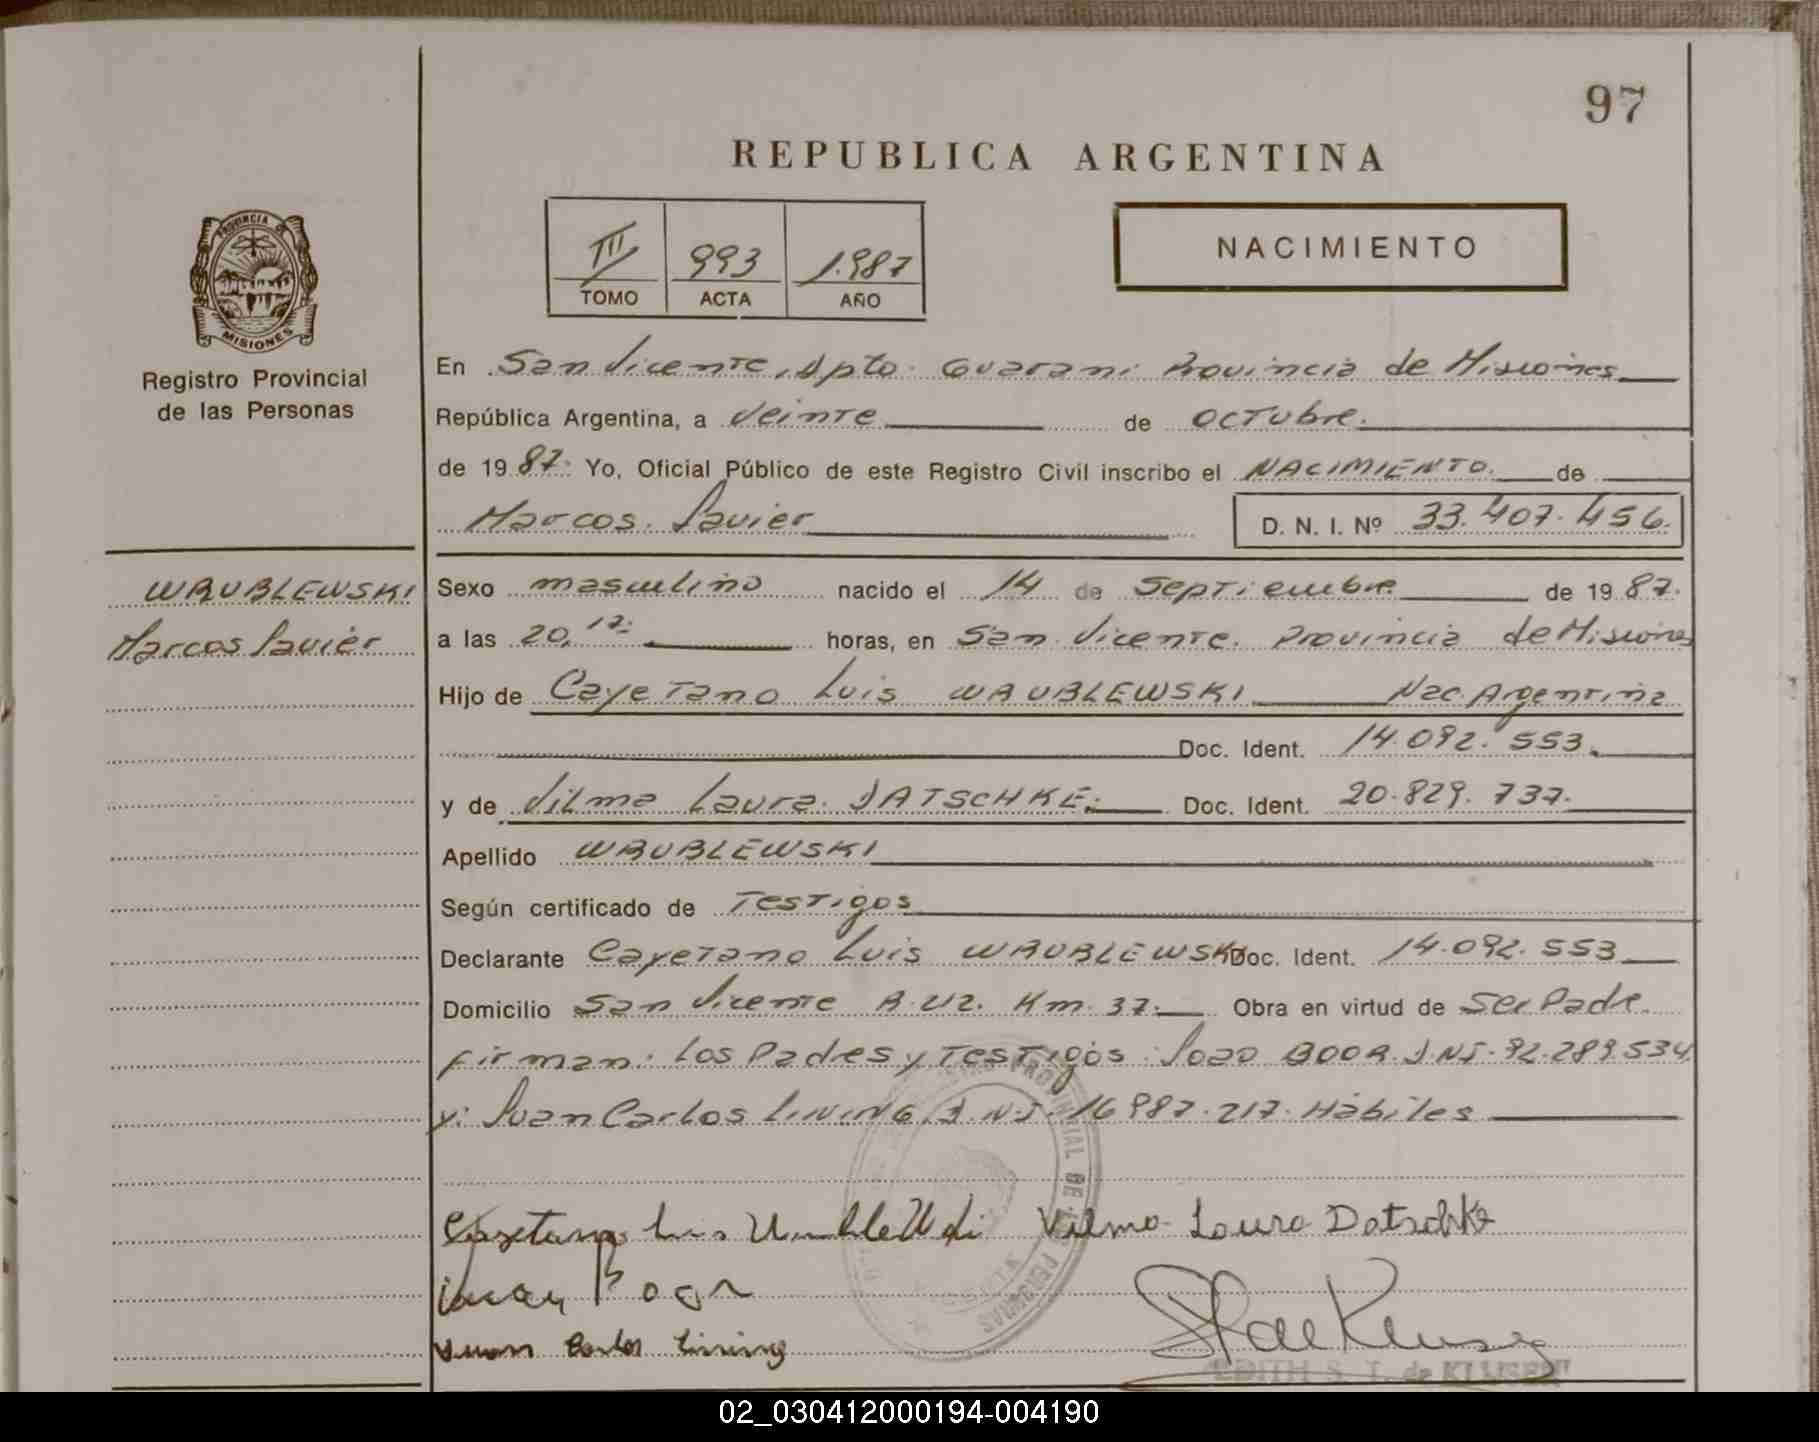 97
REPUBLICA ARGENTINA
III 993 1.987
TOMO ACTA AÑO
NACIMIENTO
PROVINCIA DE
MISIONES
Registro Provincial
de las Personas
En San Vicente, Dpto. Guarani Provincia de Misiones
República Argentina, a Veinte de OCTUbre.
de 19 87. Yo, Oficial Público de este Registro Civil inscribo el NACIMIENTO. de
Marcos Javier D. N. I. Nº 33.407.456.
WRUBLEWSKI
Marcos Javier
Sexo masculino nacido el 14 de Septiembre de 19 87.
a las 20,17. horas, en San Vicente. Provincia de Misiones
Hijo de Cayetano Luis WRUBLEWSKI Nac. Argentina
Doc. Ident. 14.092.553.
y de Vilma Laura DATSCHKE. Doc. Ident. 20.829.737.
Apellido WRUBLEWSKI
Según certificado de Testigos
Declarante Cayetano Luis WRUBLEWSKI Doc. Ident. 14.092.553
Domicilio San Vicente R. Km. 37. Obra en virtud de Ser Padre.
firman: Los Padres y Testigos: Joao BOOR. D.N.I. 92.289.534
y: Juan Carlos LINING, D.N.I. 16.987.217. Hábiles
PROVINCIAL DE LAS PERSONAS
Cayetano Luis Vilma Laura Datschke
Boor
Juan Carlos Lining
EDITH S. T. de KLUSEN
02_030412000194-004190